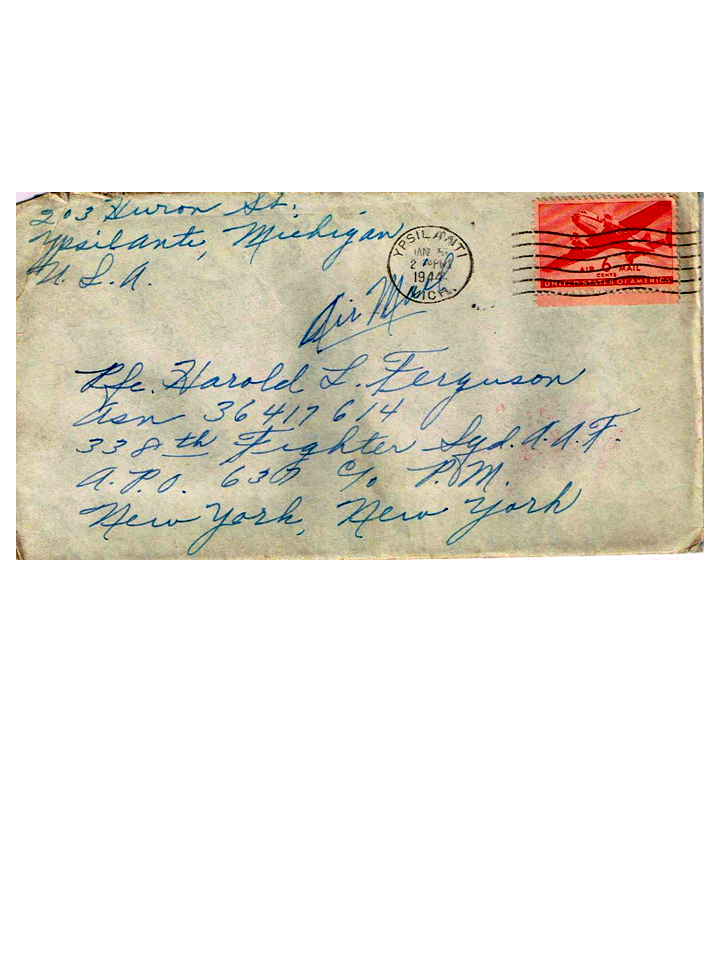 203 Huron St.
Ypsilanti, Michigan
U. S. A.
YPSILANTI
JAN 5
2 PM
1944
MICH.
AIR 6 MAIL
CENTS
UNITED STATES OF AMERICA
Air Mail
Pfc. Harold L. Ferguson
asn 36417614
338th Fighter Sqd. A.A.F.
A.P.O. 637 c/o P.M.
New York, New York